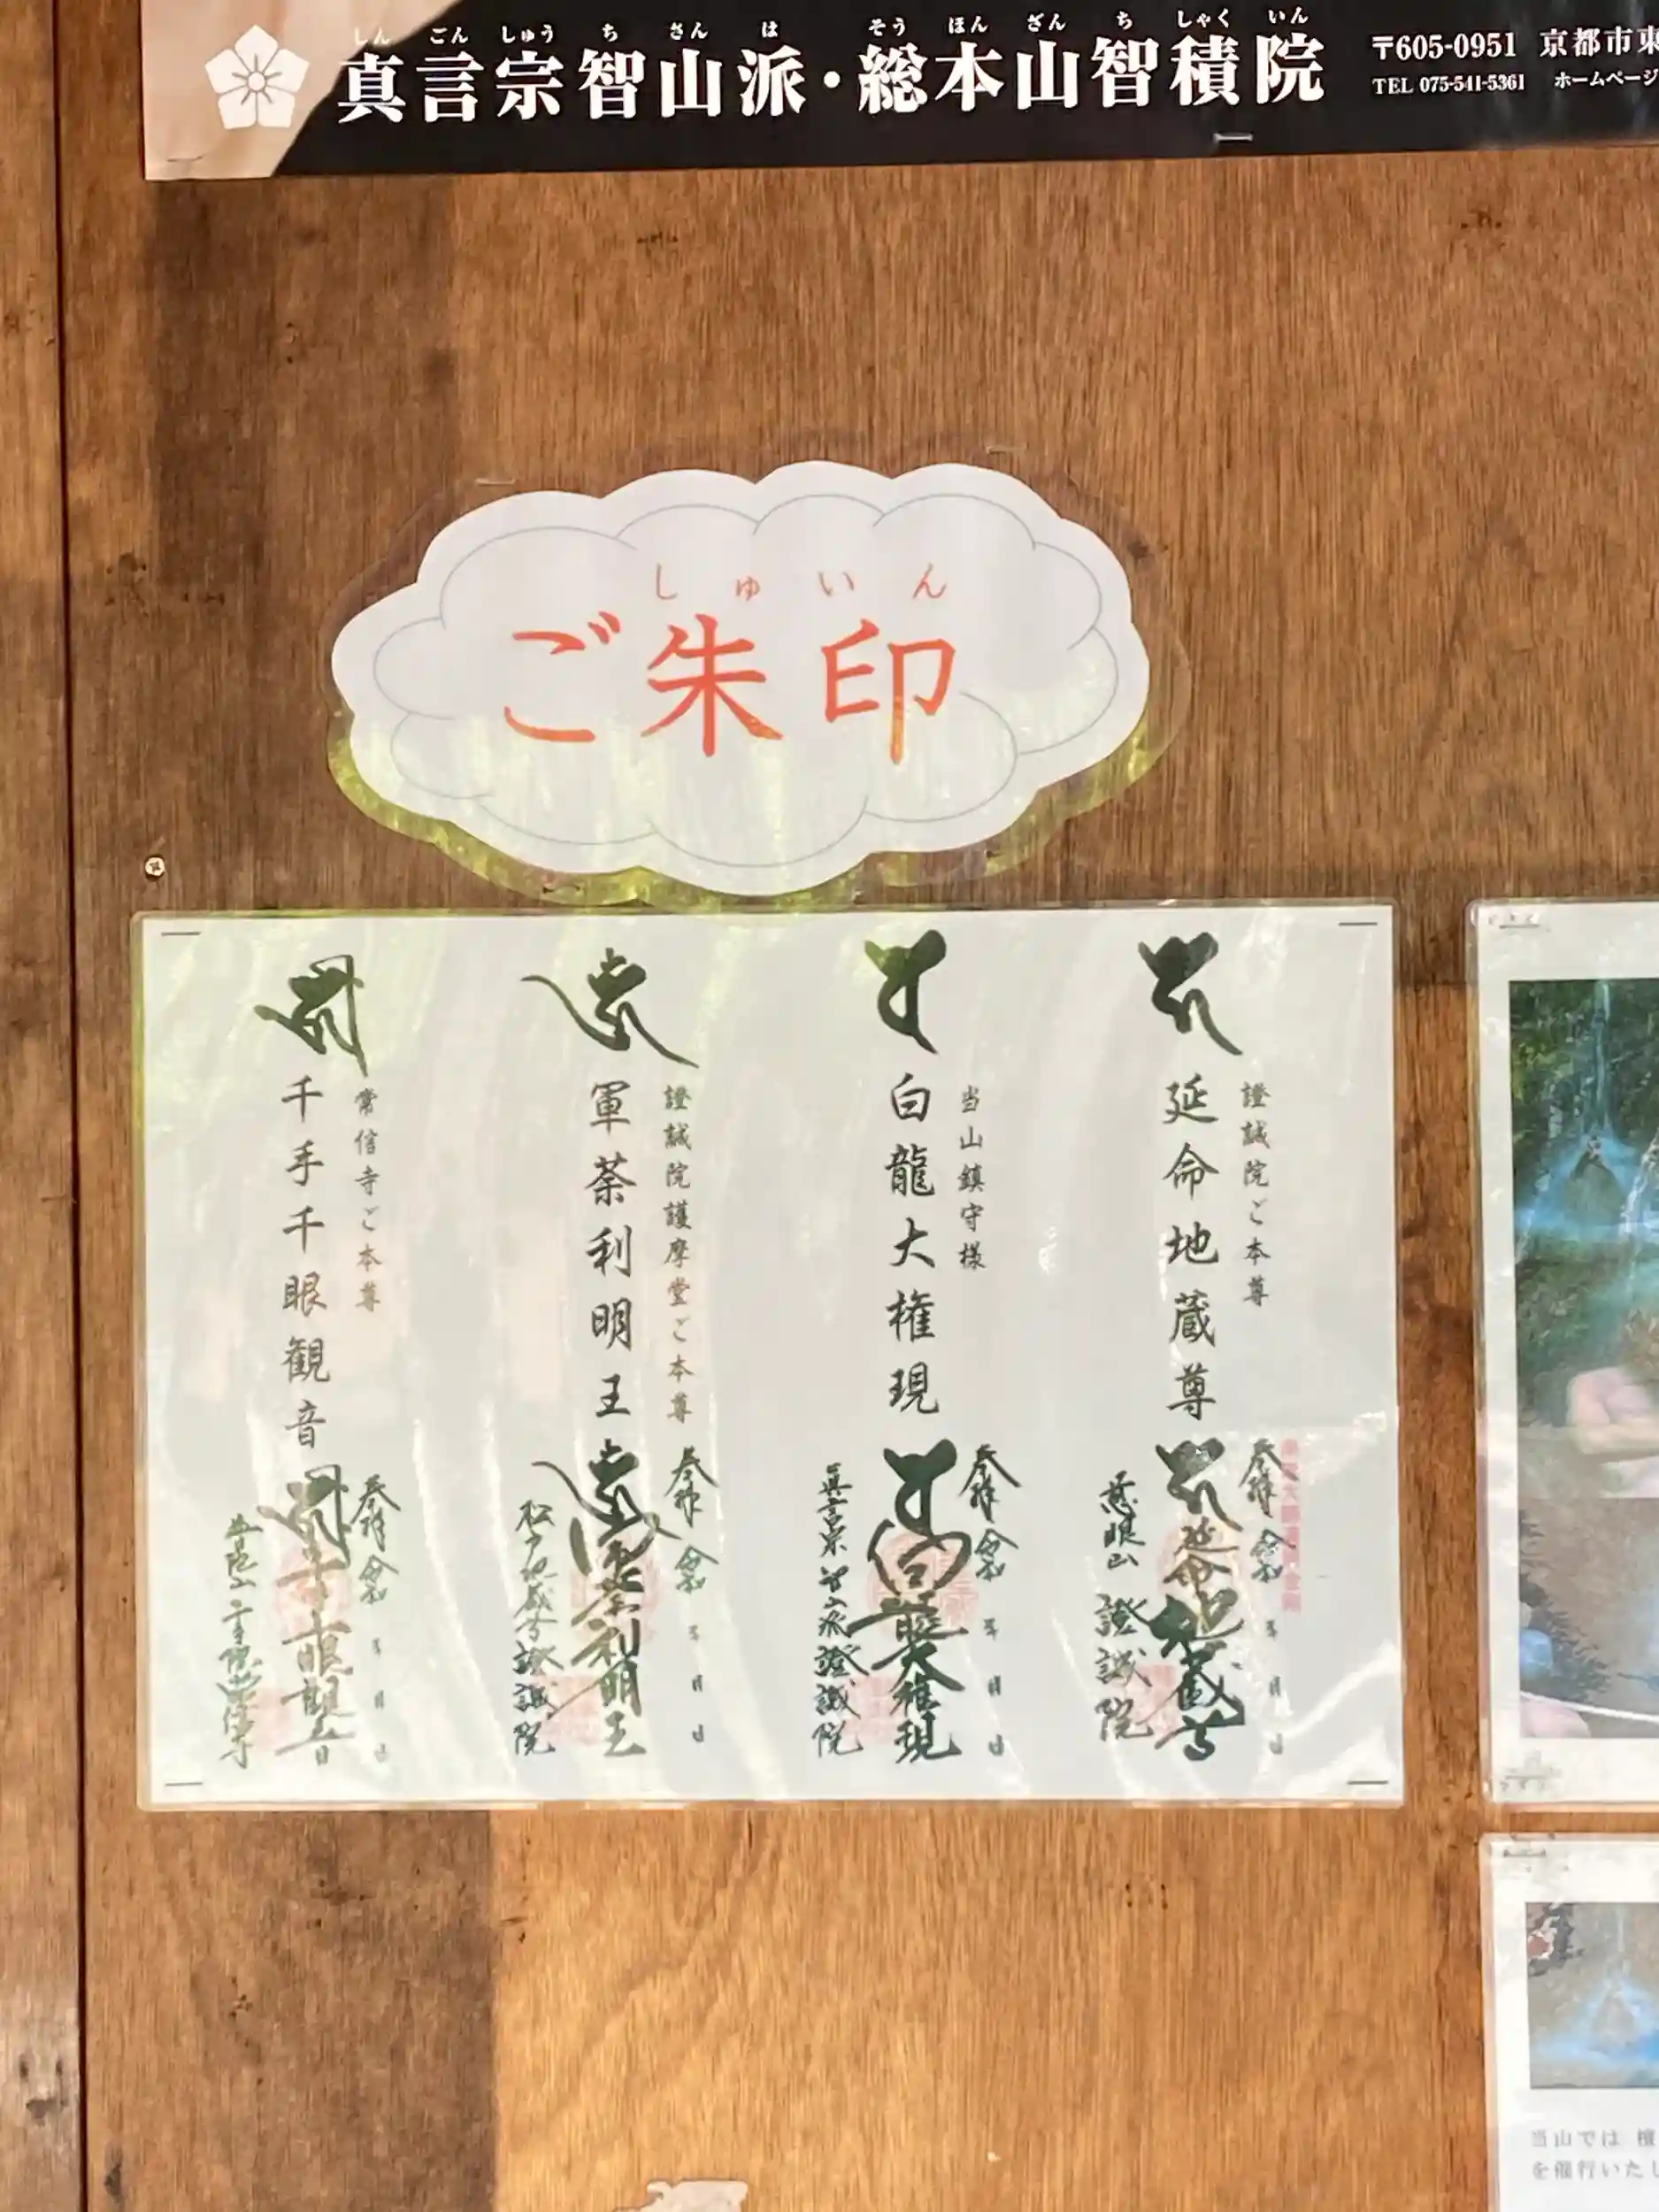 しんごんしゅうちさんは そうほんざんちしゃくいん
真言宗智山派・総本山智積院
〒605-0951 京都市東
TEL 075-541-5361 ホームページ
しゅいん
ご朱印
證誠院ご本尊
延命地蔵尊
当山鎮守様
白龍大権現
證誠院護摩堂ご本尊
軍荼利明王
常信寺ご本尊
千手千眼観音
奉拝 令和 年 月 日
延命地蔵尊
慈眼山 證誠院
奉拝 令和 年 月 日
白龍大権現
真言宗智山派 證誠院
奉拝 令和 年 月 日
軍荼利明王
證誠院
奉拝 令和 年 月 日
千手千眼観音
当山では 檀
を催行いたし